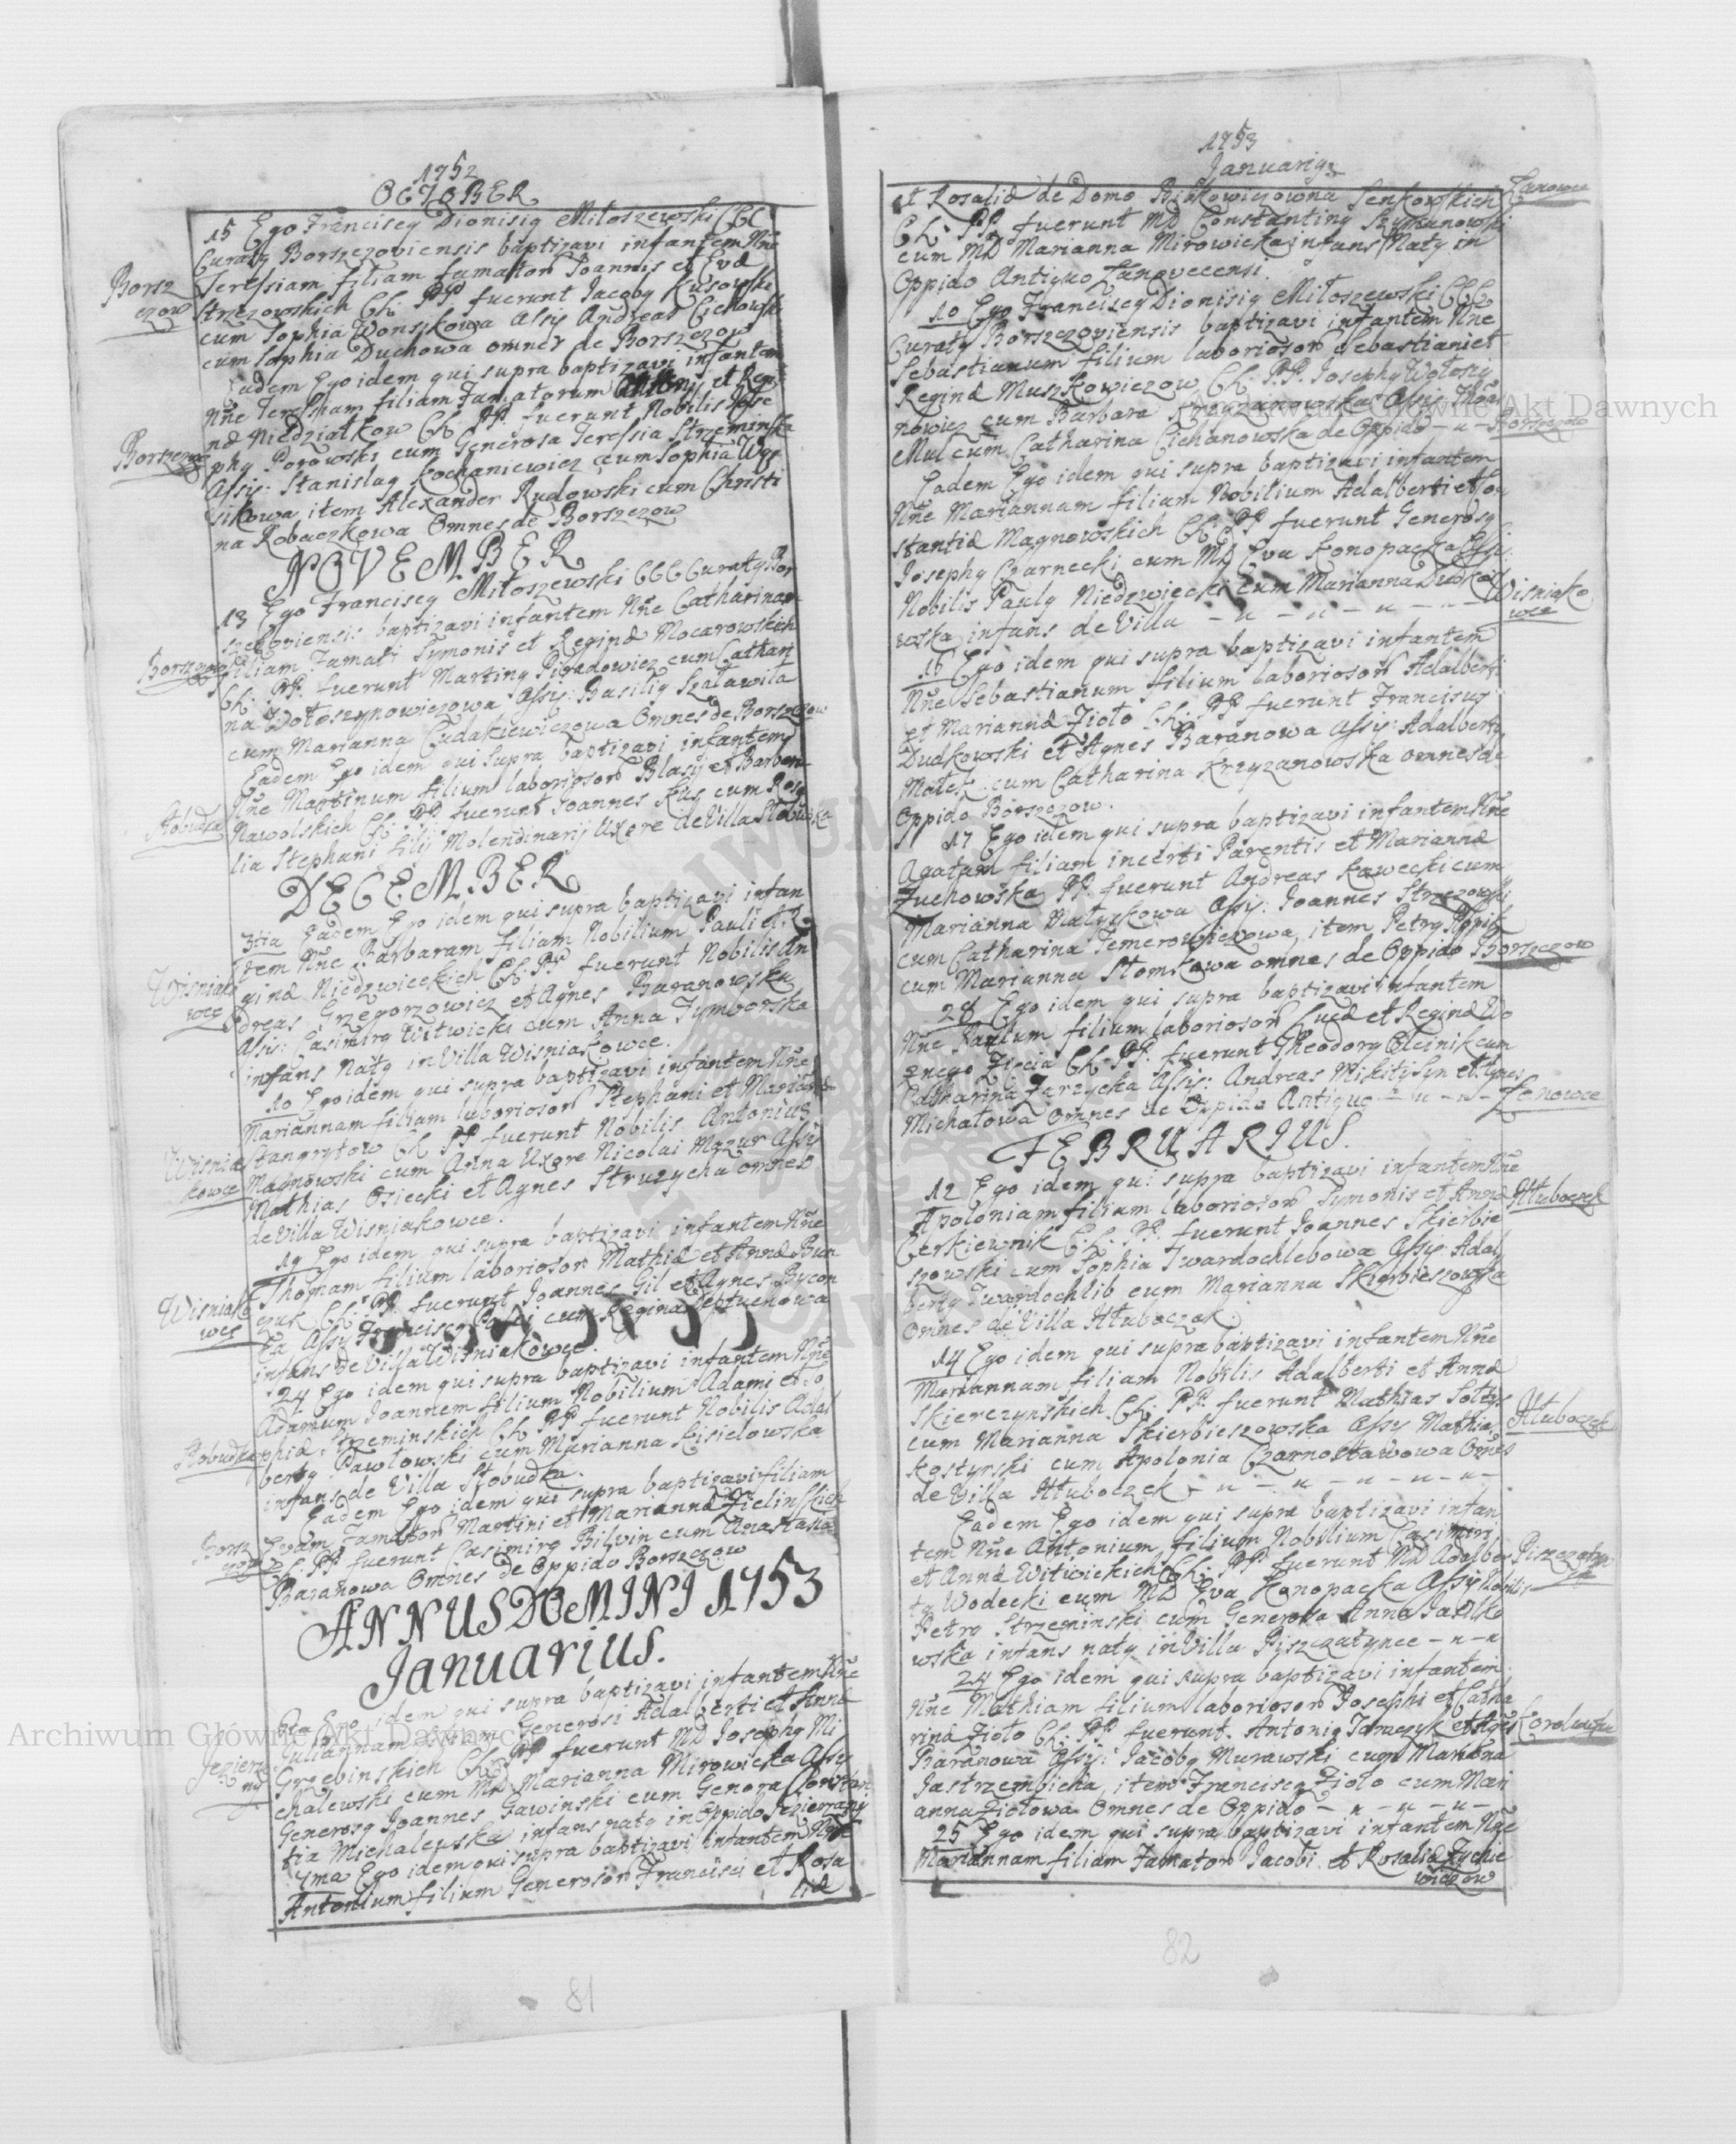 1752
OCTOBER
15 Ego Franciscq Dionisiq Miłoszewski CCC
Curatq Borszczoviensis baptizavi infantem Nñe
Teressiam filiam famator Joannis et Eva
Borsz
czow
Strzezowskich CL PP. fuerunt Jacobq Kusowski
cum Sophia Wonszkowa Assis Andreas Cichowski
cum Sophia Duchowa omnes de Borszczow
Eadem Ego idem qui supra baptizavi infantem
Nñe Teressiam filiam Famatorum Antonij et Regi
na Niedziałkow CL PP. fuerunt Nobilis Jose
Borszczow
phq Porowski cum Generosa Teressia Strzeminska
Assis: Stanislaq Kochaniewicz cum Sophia Wąs
sikowa item Alexander Rudowski cum Christi
na Robaczkowa Omnes de Borszczow
NOVEMBER
13 Ego Franciscq Miłoszewski CCC Curatq Bor
szczoviensis baptizavi infantem Nñe Catharinam
Borszczow
filiam Famati Symonis et Regina Mocarowskich
CL: PP. fuerunt Martinq Pigadowicz cum Cathari
na Wołoszynowiczowa Assis: Basiliq Szaławiła
cum Marianna Cudakiewiczowa Omnes de Borszczow
Eadem Ego idem qui supra baptizavi infantem
Nñe Martinum filium laborioson Blasij et Barbara
Nawolskich CL: PP. fuerunt Joannes Kus cum Rosa
Stobudka
lia Stephani filij Molendinarij Uxore de Villa Stobudka
DECEMBER
3tia Eadem Ego idem qui supra baptizavi infan
tem Nñe Barbaram filiam Nobilium Pauli et Re
gina Niedzwieckich CL: PP. fuerunt Nobilis An
Wisniako
wce
dreas Grzegorzowicz et Agnes Baranowska
Assis: Casimirq Witwicki cum Anna Tymborska
infans natq in Villa Wisniakowce.
10 Ego idem qui supra baptizavi infantem Nñe
Mariannam filiam laborioson Stephani et Marianna
Stangrytow CL PP fuerunt Nobilis Antonius
Wisnia
kowce
Magnowski cum Anna Uxore Nicolai Mazur Assis
Mathias Osiecki et Agnes Struzycha omnes
de Villa Wisniakowce.
19 Ego idem qui supra baptizavi infantem Nñe
Thomam filium laborioson Mathia et Anna Bun
czuk CL: PP. fuerunt Joannes Gil et Agnes Bycon
Wisniako
wce
ka Assis Franciscq cum Regina Septuchowa
infans de Villa Wisniakowce.
24 Ego idem qui supra baptizavi infantem Nñe
Adamum Joannem filium Nobilium Adami et So
phia Strzeminskich CL PP fuerunt Nobilis Adal
Stobudka
bertq Pawłowski cum Marianna Kisielowska
infans de Villa Stobudka.
Eadem Ego idem qui supra baptizavi filiam
Evam Famator Martini et Marianna Zielinskich
Borsz
czow
CL. PP fuerunt Casimirq Bilvin cum Anastasia
Baranowa Omnes de Oppido Borszczow
ANNUS DOMINI 1753
Januarius.
6ta Ego idem qui supra baptizavi infantem Nñe
Juliannam filiam Generosi Adalberti et Anna
Grzebinskich CL: PP fuerunt MD Josephq Mi
Jezierza
ny
chalewski cum MD Marianna Mirowicka Assis
Generosq Joannes Gawinski cum Genora Constan
tia Michalewska infans natq in Oppido Jezierzany
7ma Ego idem qui supra baptizavi infantem Nñe
Antonium filium Generoson Francisci et Rosa
lia
81
1753
Januariq
et Rosalia de Domo Senkowskich
Lanowce
CL. PP. fuerunt MD Constantinq Szymanowski
cum MD Marianna Mirowicka infans Natq in
Oppido Antiquo Lanovecensi.
10 Ego Franciscq Dionisiq Miłoszewski CCC
Curatq Borszczoviensis baptizavi infantem Nñe
Sebastianum filium laborioson Sebastiani et
Regina Muszkowiczow CL: PP. Josephq Wołosz
nowicz cum Barbara Krzyzanowska Assis
Mul cum Catharina Cichanowska de Oppido - u - Borszczow
Eadem Ego idem qui supra baptizavi infantem
Nñe Mariannam filiam Nobilium Adalberti et Con
stantia Magnowskich CL: PP fuerunt Generosq
Josephq Czarnecki cum MD Eva Konopacka Assis
Nobilis Paulq Niedzwiecki cum Marianna Dudko
Wisniako
wce
wska infans de Villa - u - u - u - u -
16 Ego idem qui supra baptizavi infantem
Nñe Sebastianum filium laborioson Adalberti
et Marianna Zioło CL: PP fuerunt Francisus
Dudkowski et Agnes Baranowa Assis: Adalbertq
Małek cum Catharina Krzyzanowska omnes de
Oppido Borszczow.
17 Ego idem qui supra baptizavi infantem Nñe
Agatam filiam incerti Parentis et Marianna
Zuchowska PP. fuerunt Andreas Kawecki cum
Marianna Matyszkowa Assis: Joannes Strzezowski
cum Catharina Temerowiczowa, item Petrq
cum Marianna Słomkowa omnes de Oppido Borszczow
28 Ego idem qui supra baptizavi infantem
Nñe Paulum filium laborioson Luca et Regina Wo
znego Zięcia CL: PP. fuerunt Theodorq Oleinik cum
Catharina Zarzycka Assis: Andreas Mikity Syn et Agnes
Michałowa Omnes de Oppido Antiquo - u - u - Lanowce
FEBRUARIUS.
12 Ego idem qui supra baptizavi infantem Nñe
Apoloniam filiam laborioson Symonis et Anna
Hłuboczek
Cerkiewnik CL. PP. fuerunt Joannes Skierbie
szowski cum Sophia Twardochlebowa Assis Adal
bertq Twardochlib cum Marianna Skierbieszowska
Omnes de Villa Hłuboczek
14 Ego idem qui supra baptizavi infantem Nñe
Mariannam filiam Nobilis Adalberti et Anna
Skierczynskich. CL: PP. fuerunt Mathias Sołtys
cum Marianna Skierbieszowska Assis Mathias
Hłuboczek
Kostyrski cum Apolonia Czarnostawowa Omes
de Villa Hłuboczek - u - u - u - u - u -
Eadem Ego idem qui supra baptizavi infan
tem Nñe Antonium filium Nobilium Casimiri
et Anna Witwickich CL: PP. fuerunt MD Adalber
Piszczatyn
ce
tq Wodecki cum MD Eva Konopacka Assis Nobilis
Petrq Strzeminski cum Generosa Anna Jasilko
wska infans natq in Villa Piszczatynce - u - u
24 Ego idem qui supra baptizavi infantem
Nñe Mathiam filium laborioson Josephi et Catha
rina Zioło CL: PP. fuerunt. Antoniq et Agnes
Baranowa Assis: Jacobq Murawski cum Marianna
Jastrzembicha, item Franciscq Zioło cum Mari
anna Ziołowa Omnes de Oppido - u - u - u -
25 Ego idem qui supra baptizavi infantem Nñe
Mariannam filiam Famator Jacobi et Rosalia Zychie
wiczow
82
Archiwum Główne Akt Dawnych
Archiwum Główne Akt Dawnych